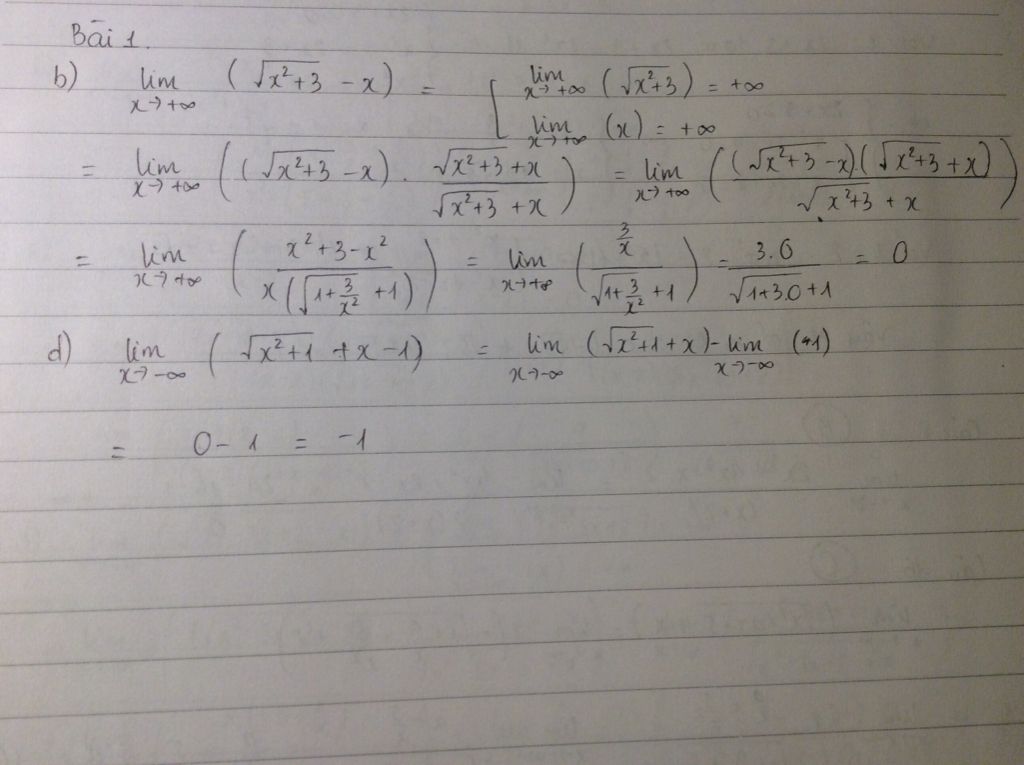 Bài 1.
b) lim x→+∞ (√(x²+3) − x) = [ lim x→+∞ (√(x²+3)) = +∞
lim x→+∞ (x) = +∞
= lim x→+∞ ((√(x²+3) − x) . (√(x²+3) + x)/(√(x²+3) + x)) = lim x→+∞ (((√(x²+3) − x).(√(x²+3) + x))/(√(x²+3) + x))
= lim x→+∞ ((x²+3−x²)/(x(√(1+3/x²) + 1))) = lim x→+∞ ((3/x)/(√(1+3/x²) + 1)) = 3.0/(√(1+3.0) + 1) = 0
d) lim x→−∞ (√(x²+1) + x − 1) = lim x→−∞ (√(x²+1) + x) − lim x→−∞ (1)
= 0 − 1 = −1